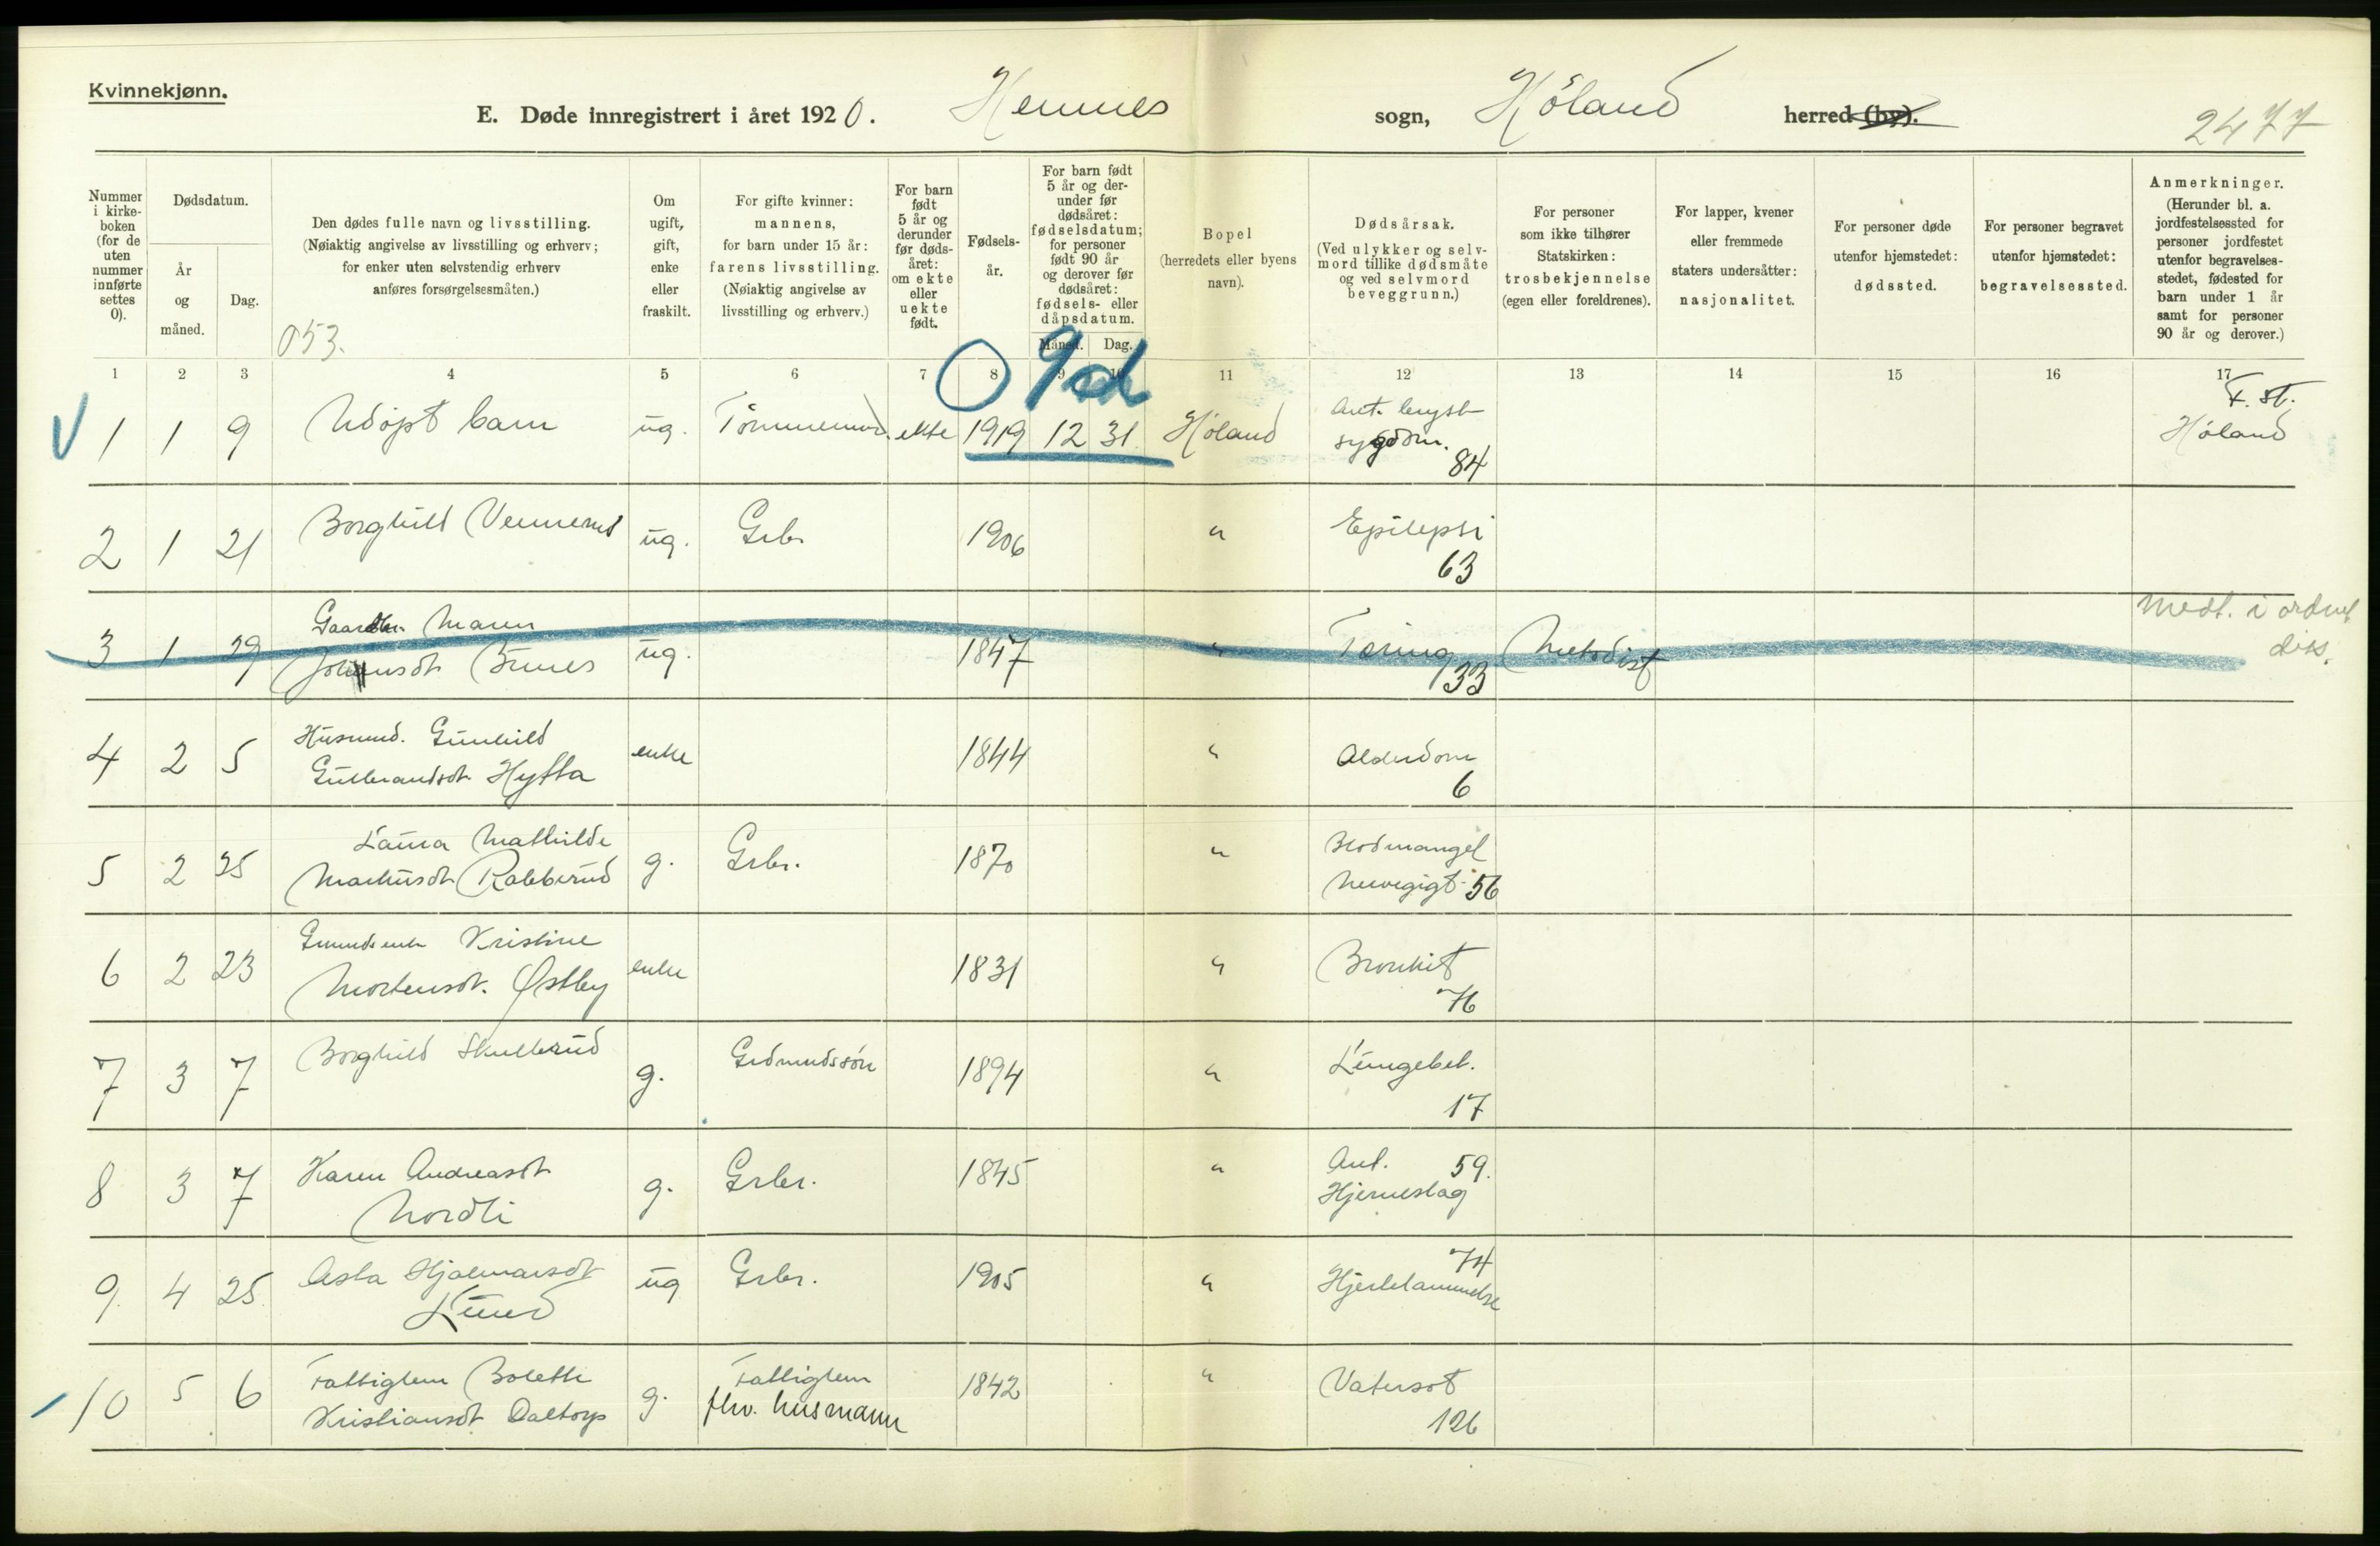 Kvinnekjønn.
E. Døde innregistrert i året 1920. Hemnes sogn, Høland herred (by).
2477
Nummer i kirke-boken (for de uten nummer innførte settes 0).
Dødsdatum.
År og måned.
Dag.
Den dødes fulle navn og livsstilling.
(Nøiaktig angivelse av livsstilling og erhverv;
for enker uten selvstendig erhverv
anføres forsørgelsesmåten.)
053.
Om ugift, gift, enke eller fraskilt.
For gifte kvinner:
mannens,
for barn under 15 år:
farens livsstilling.
(Nøiaktig angivelse av
livsstilling og erhverv.)
For barn født 5 år og derunder før døds-året: om ekte eller uekte født.
Fødsels-år.
For barn født 5 år og der-under før dødsåret: fødselsdatum; for personer født 90 år og derover før dødsåret: fødsels- eller dåpsdatum.
Måned. Dag.
Bopel
(herredets eller byens
navn).
Dødsårsak.
(Ved ulykker og selv-
mord tillike dødsmåte
og ved selvmord
beveggrunn.)
For personer
som ikke tilhører
Statskirken:
trosbekjennelse
(egen eller foreldrenes).
For lapper, kvener
eller fremmede
staters undersåtter:
nasjonalitet.
For personer døde
utenfor hjemstedet:
dødssted.
For personer begravet
utenfor hjemstedet:
begravelsessted.
Anmerkninger.
(Herunder bl. a.
jordfestelsessted for
personer jordfestet
utenfor begravelses-
stedet, fødested for
barn under 1 år
samt for personer
90 år og derover.)
1 2 3 4 5 6 7 8 9 10 11 12 13 14 15 16 17
0 9d
1 1 9 Udøpt barn ug. Tømmermd. ekte 1919 12 31 Høland Ant. bryst-
sygdom. 84
F. st.
Høland
2 1 21 Borghild Vennerud ug. Grbr. 1906 " Epilepsi
63
3 1 29 Gaardbr. Maren
Johansdt Bunes ug. 1847 " Tæring Metodist
33
Medt. i ordnet
diss.
4 2 5 Husmd. Gunhild
Gulbrandsdt Hytta enke 1844 " Alderdom
6
5 2 25 Laura Mathilde
Markusdt Rakkerud g. Grbr. 1870 " Blodmangel
Nervegigt 56
6 2 23 Kristine
Mortensdt. Østby enke 1831 " Bronkit
76
7 3 7 Borghild Skullerud g. Grdmandssøn 1894 " Lungebet.
17
8 3 7 Karen Andreasdt
Nordli g. Grbr. 1845 " Ant. 59.
Hjerneslag
9. 4 25. Asta Hjalmarsdt
Lund ug Grbr. 1905 " 74
Hjertelammelse
10 5 6 Fattiglem Bolette
Kristiansdt Daltorp g. Fattiglem
fhv. husmann 1842 " Vatersot
126